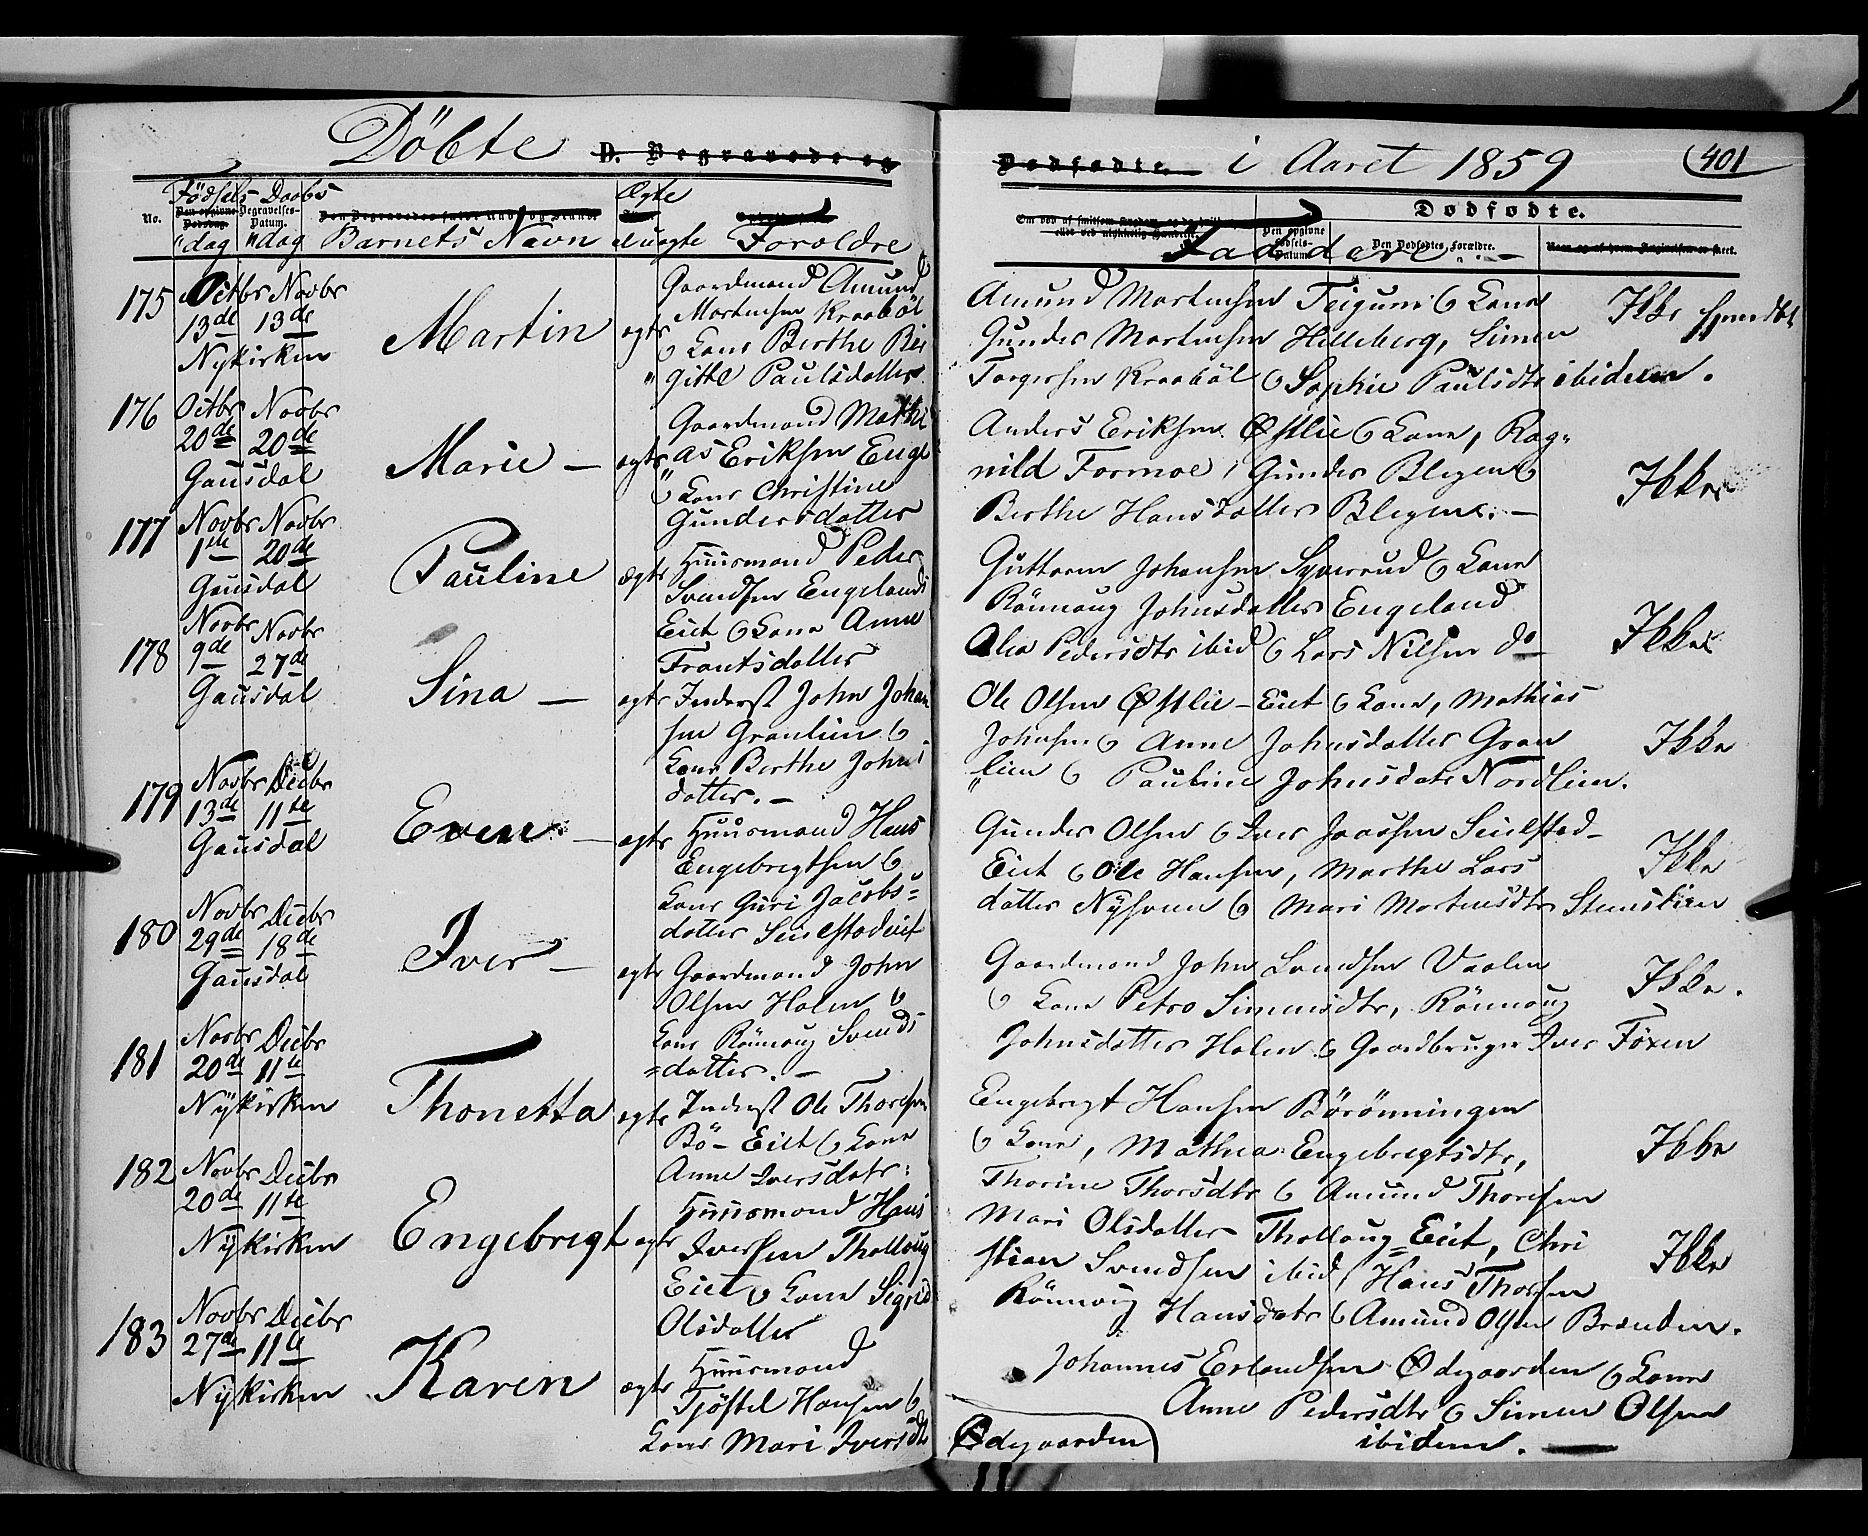 Döbte D. Begravede og
Dødfødte. i Aaret 1859 401
No. Födsels dag Daabs dag Barnets Navn Ægte el uægte Foroldre Faddere
Dødfødte.
175 Octbr 13de Novbr 13de Nykirken
Martin
ægte
Gaardmand Amund
Mortensen Kraaböl
& Kone Berthe Bir
gitte Paulsdatter
Amund Mortensen Teigum & Kone
Gunder Mortensen Hilleberg, Simen
Torgersen Kraaböl & Sophie Paulsdtr ibidem.
Ikke
176 Octbr 20de Novbr 20de Gausdal
Marie –
ægte
Gaardmand Mathi
as Eriksen Enge
& Kone Christine
Gundersdatter
Anders Eriksen Østlie & Kone, Rag„
nild Formoe, Gunder Blegen &
Berthe Hansdatter Blegen. –
Ikke
177 Novbr 1ste Novbr 20de Gausdal
Pauline
ægte
Huusmand Peder
Svendsen Engelands
Eiet & Kone Anne
Frantsdatter
Guttorm Johansen Syverud & Kone
Rönnaug Johnsdatter Engeland
Olea Pedersdtr ibid & Lars Nilsen do
Ikke
178 Novbr 9de Novbr 27de Gausdal
Sina –
ægte
Inderst John Johan
sen Granlien &
Kone Berthe Johns
datter. –
Ole Olsen Østlie – Eiet & Kone, Mathias
Johnsen & Anne Johnsdatter Gran
„lien & Pauline Johnsdatr Nordlien.
Ikke
179 Novbr 13de Decbr 11te Gausdal
Even –
ægte
Huusmand Hans
Engebregtsen &
Kone Guri Jacobs=
datter Seielstadeiet
Gunder Olsen & Iver Jacobsen Seielstad–
Eiet & Ole Hansen, Marthe Lars
datter Nysveen & Mari Mortensdtr Steenskien
Ikke
180 Novbr 29de Decbr 18de Gausdal
Iver –
ægte
Gaardmand John
Olsen Holen &
Kone Rönnaug Svends
=datter. –
Gaardmand John Svendsen Vaalen
& Kone Petro Simensdtr, Rönnaug
Johnsdatter Holen & Gaardbruger Iver Foxen
Ikke.
181 Novbr 20de Decbr 11te Nykirken
Thonetta
ægte
Inderst Ole Thoresen
Bö – Eiet & Kone
Anne Iversdatr:
Engebregt Hansen Börönningen
& Kone, Mathea Engebregtsdtr,
Thorine Thorsdtr & Amund Thoresen
Ikke
182 Novbr 20de Decbr 11te Nykirken
Engebregt
ægte
Huusmand Hans
Iversen Thollaug
Eiet & Kone Sigrid
Olsdatter
Mari Olsdatter Thollaug = Eiet, Chri
stian Svendsen ibid, Hans Thorsen
Rönnaug Hansdatr & Amund Olsen Brenden.
Ikke
183 Novbr 27de Decbr 11te Nykirken
Karen
ægte
Huusmand
Tjöstel Hansen &
Kone Mari Iversdtr
Ødegaarden
Johannes Erlandsen Ødegaarden & Kone
Anne Pedersdtr & Simen Olsen
ibidem.